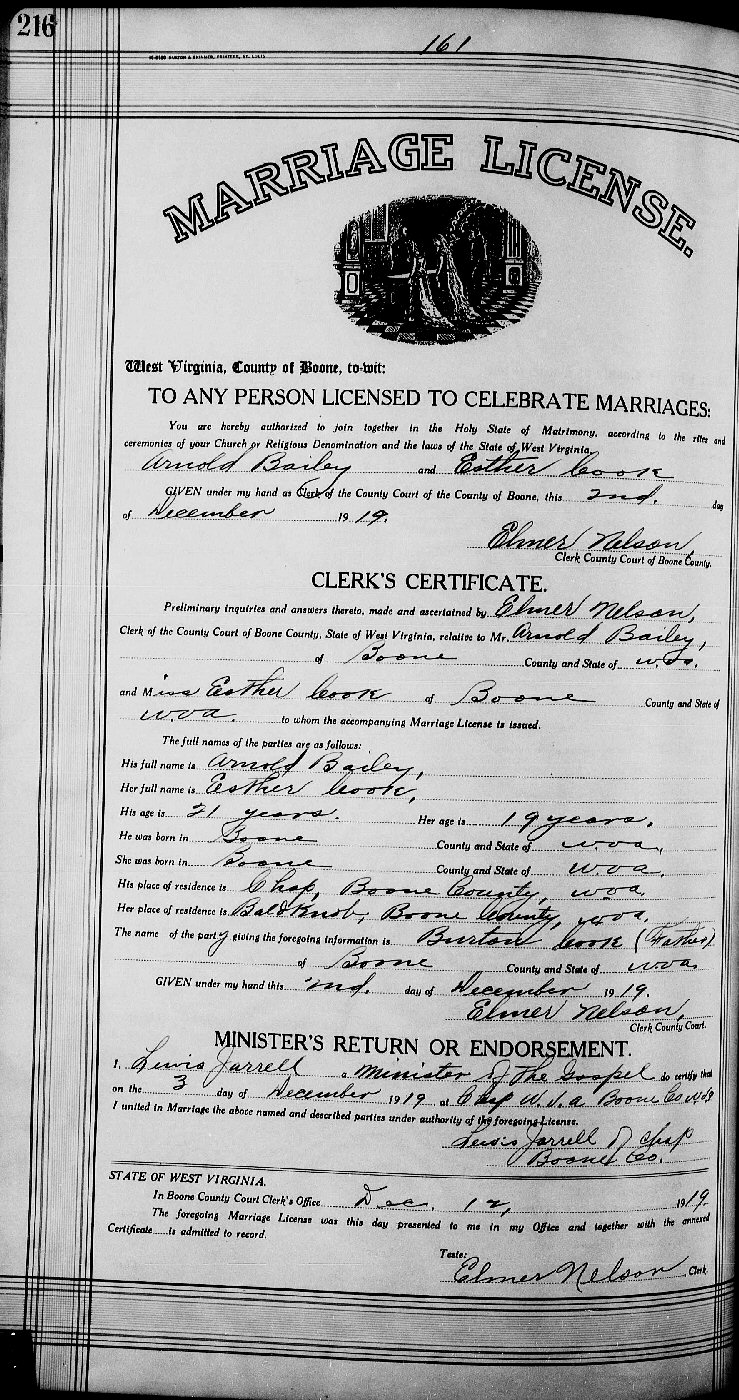 216
161
MARRIAGE LICENSE.
West Virginia, County of Boone, to-wit:
TO ANY PERSON LICENSED TO CELEBRATE MARRIAGES:
You are hereby authorized to join together in the Holy State of Matrimony, according to the rites and
ceremonies of your Church or Religious Denomination and the laws of the State of West Virginia,
Arnold Bailey and Esther Cook
GIVEN under my hand as Clerk of the County Court of the County of Boone, this 2nd. day
of December 1919.
Elmer Nelson,
Clerk County Court of Boone County.
CLERK'S CERTIFICATE.
Preliminary inquiries and answers thereto, made and ascertained by Elmer Nelson,
Clerk of the County Court of Boone County, State of West Virginia, relative to Mr. Arnold Bailey,
of Boone County and State of W.Va.
and Miss Esther Cook of Boone County and State of
W.Va. to whom the accompanying Marriage License is issued.
The full names of the parties are as follows:
His full name is Arnold Bailey,
Her full name is Esther Cook,
His age is 21 years. Her age is 19 years.
He was born in Boone County and State of W.Va.,
She was born in Boone County and State of W.Va.
His place of residence is Chap, Boone County, W.Va.
Her place of residence is Bald Knob, Boone County, W.Va.
The name of the party giving the foregoing information is Burton Cook (Father)
of Boone County and State of W.Va.
GIVEN under my hand this 2nd. day of December 1919.
Elmer Nelson,
Clerk County Court.
MINISTER'S RETURN OR ENDORSEMENT.
I, Lewis Jarrell a Minister of the Gospel do certify that
on the 3 day of December 1919 at Chap W.V.a Boone Co
I united in Marriage the above named and described parties under authority of the foregoing License.
Lewis Jarrell of Chap
Boone Co.
STATE OF WEST VIRGINIA.
In Boone County Court Clerk's Office Dec. 12, 1919.
The foregoing Marriage License was this day presented to me in my Office and together with the annexed
Certificate is admitted to record.
Teste:
Elmer Nelson Clerk